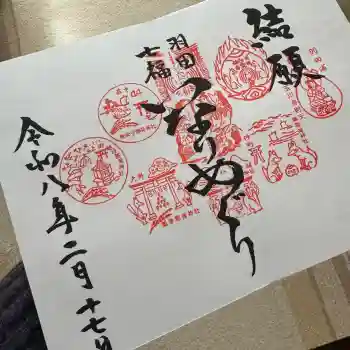 結願
羽田
七福
いなりめぐり
令和八年二月十七日